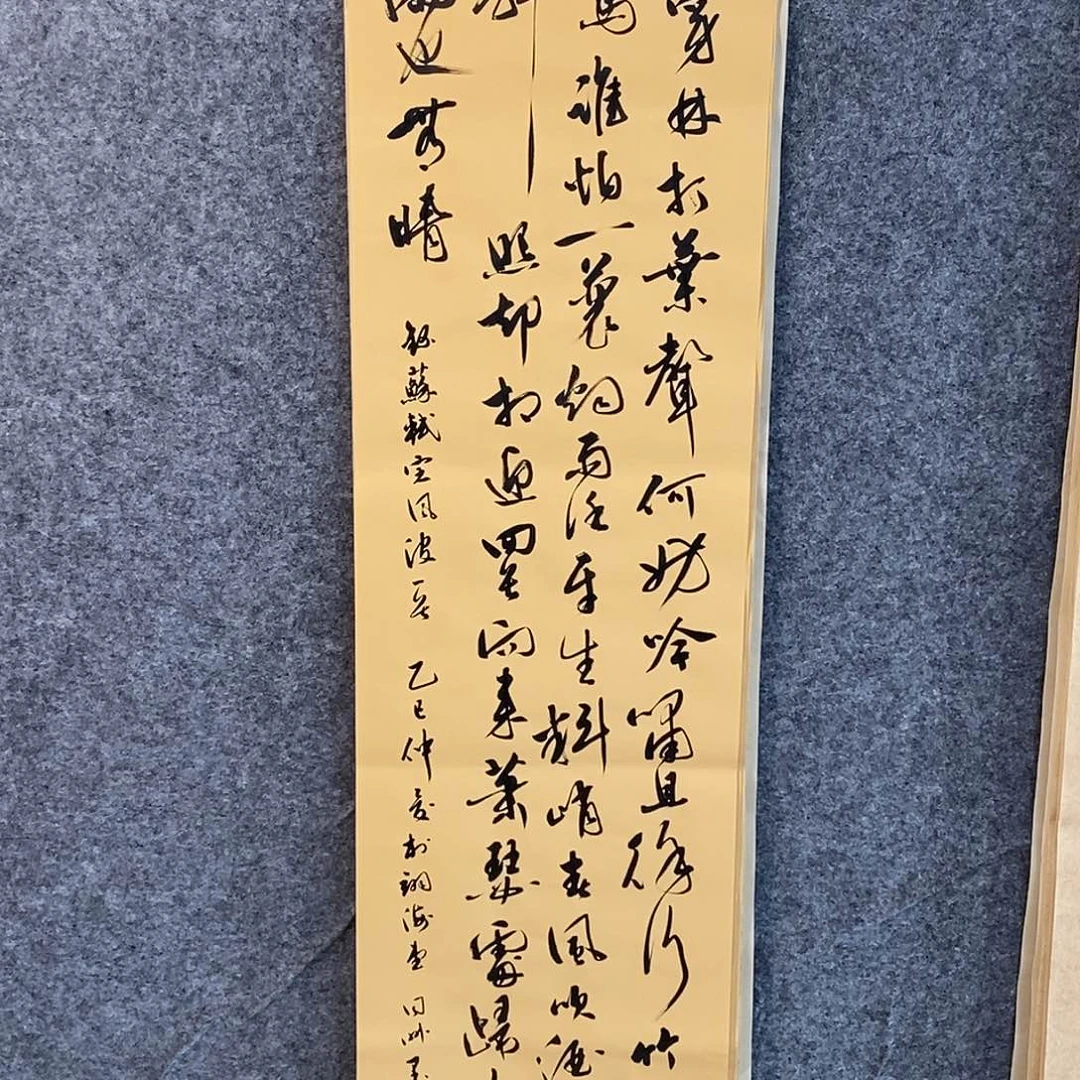 穿林打葉聲何妨吟嘯且徐行竹
馬誰怕一蓑烟雨任平生料峭春風吹酒
斜照却相迎回首向来蕭瑟處歸
也無晴
錄蘇軾定風波一首 乙巳仲夏於海堂